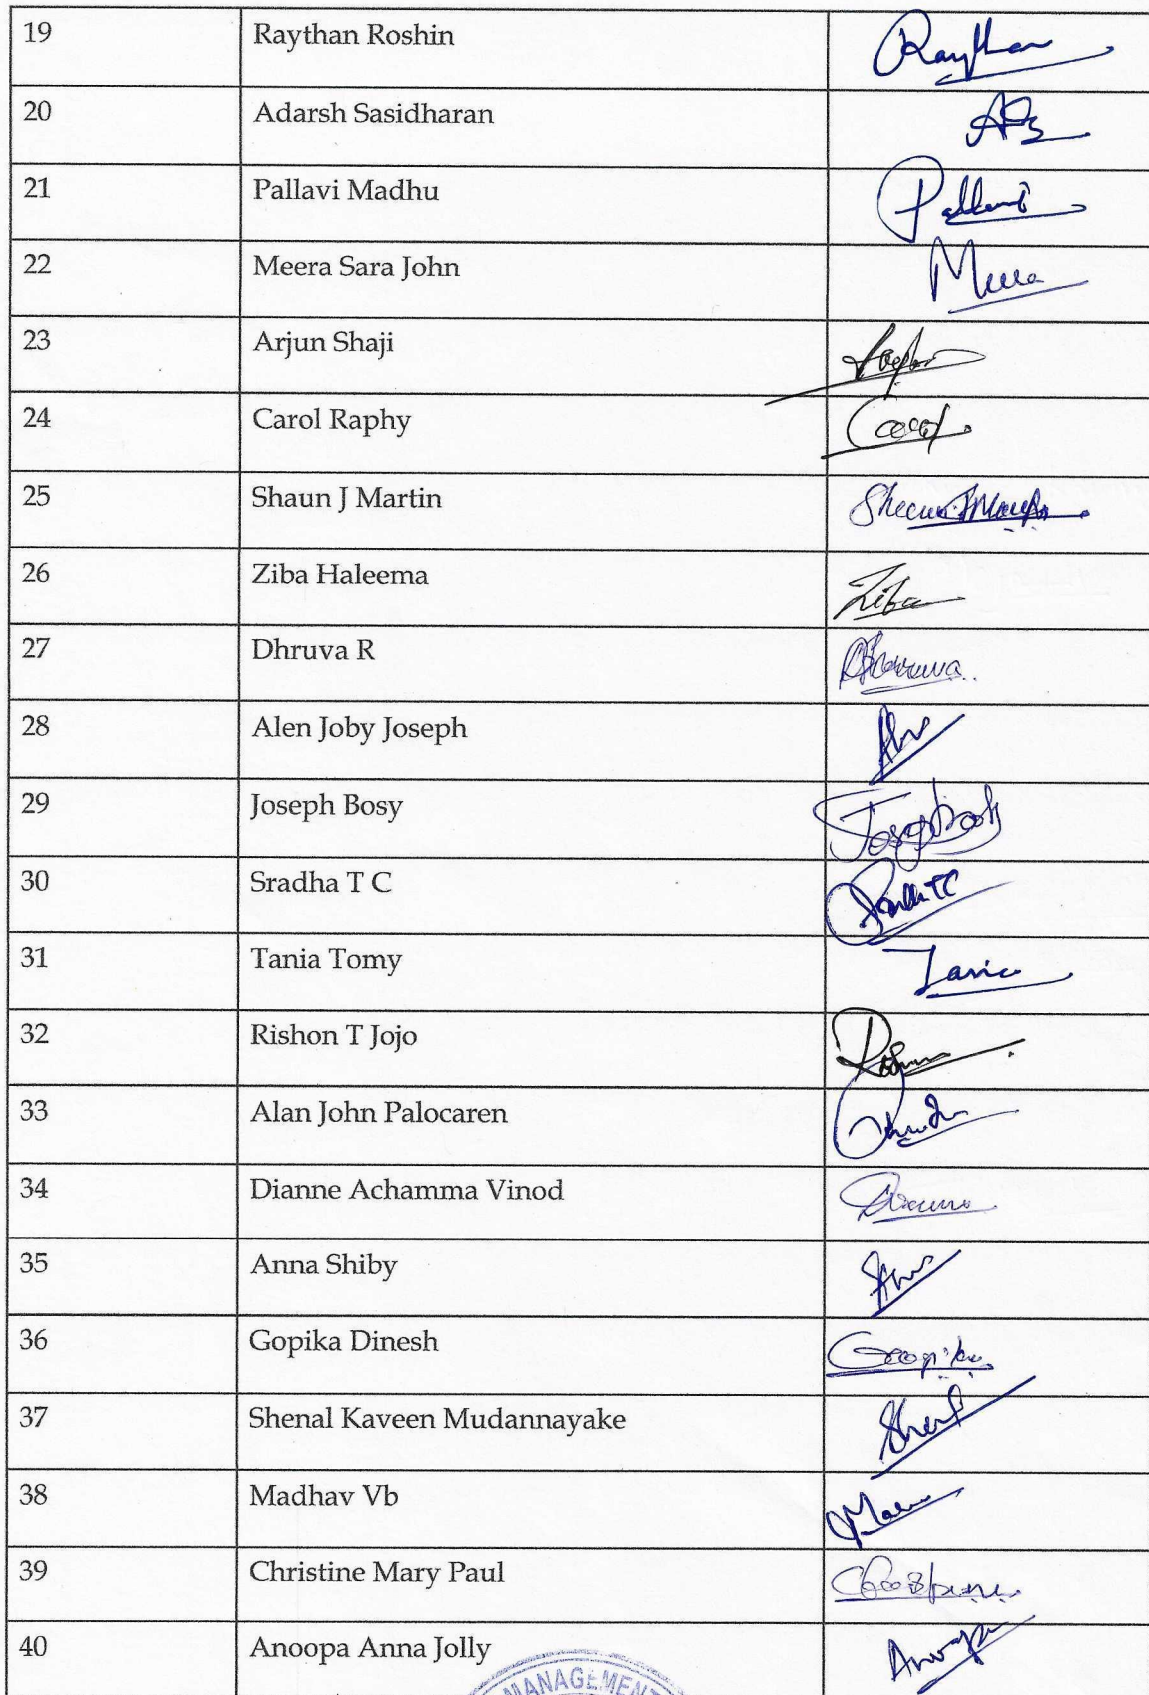 19 Raythan Roshin Raythan
20 Adarsh Sasidharan
21 Pallavi Madhu Pallavi
22 Meera Sara John Meera
23 Arjun Shaji
24 Carol Raphy Carol
25 Shaun J Martin
26 Ziba Haleema Ziba
27 Dhruva R
28 Alen Joby Joseph
29 Joseph Bosy
30 Sradha T C
31 Tania Tomy Tania
32 Rishon T Jojo
33 Alan John Palocaren
34 Dianne Achamma Vinod
35 Anna Shiby
36 Gopika Dinesh Gopika
37 Shenal Kaveen Mudannayake
38 Madhav Vb
39 Christine Mary Paul
40 Anoopa Anna Jolly Anoopa
MANAGEMENT